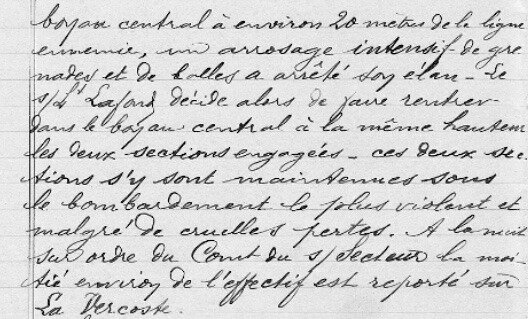 boyau central à environ 20 mètres de la ligne
ennemie, un arrosage intensif de gre
nades et de balles a arrêté son élan - Le
s/Lt Lafond décide alors de faire rentrer
dans le boyau central à la même hauteur
les deux sections engagées - ces deux sec
tions s'y sont maintenues sous
le bombardement le plus violent et
malgré de cruelles pertes. A la nuit
sur ordre du Comt du s/secteur la moi
tié environ de l'effectif est reporté sur
La Vercoste.